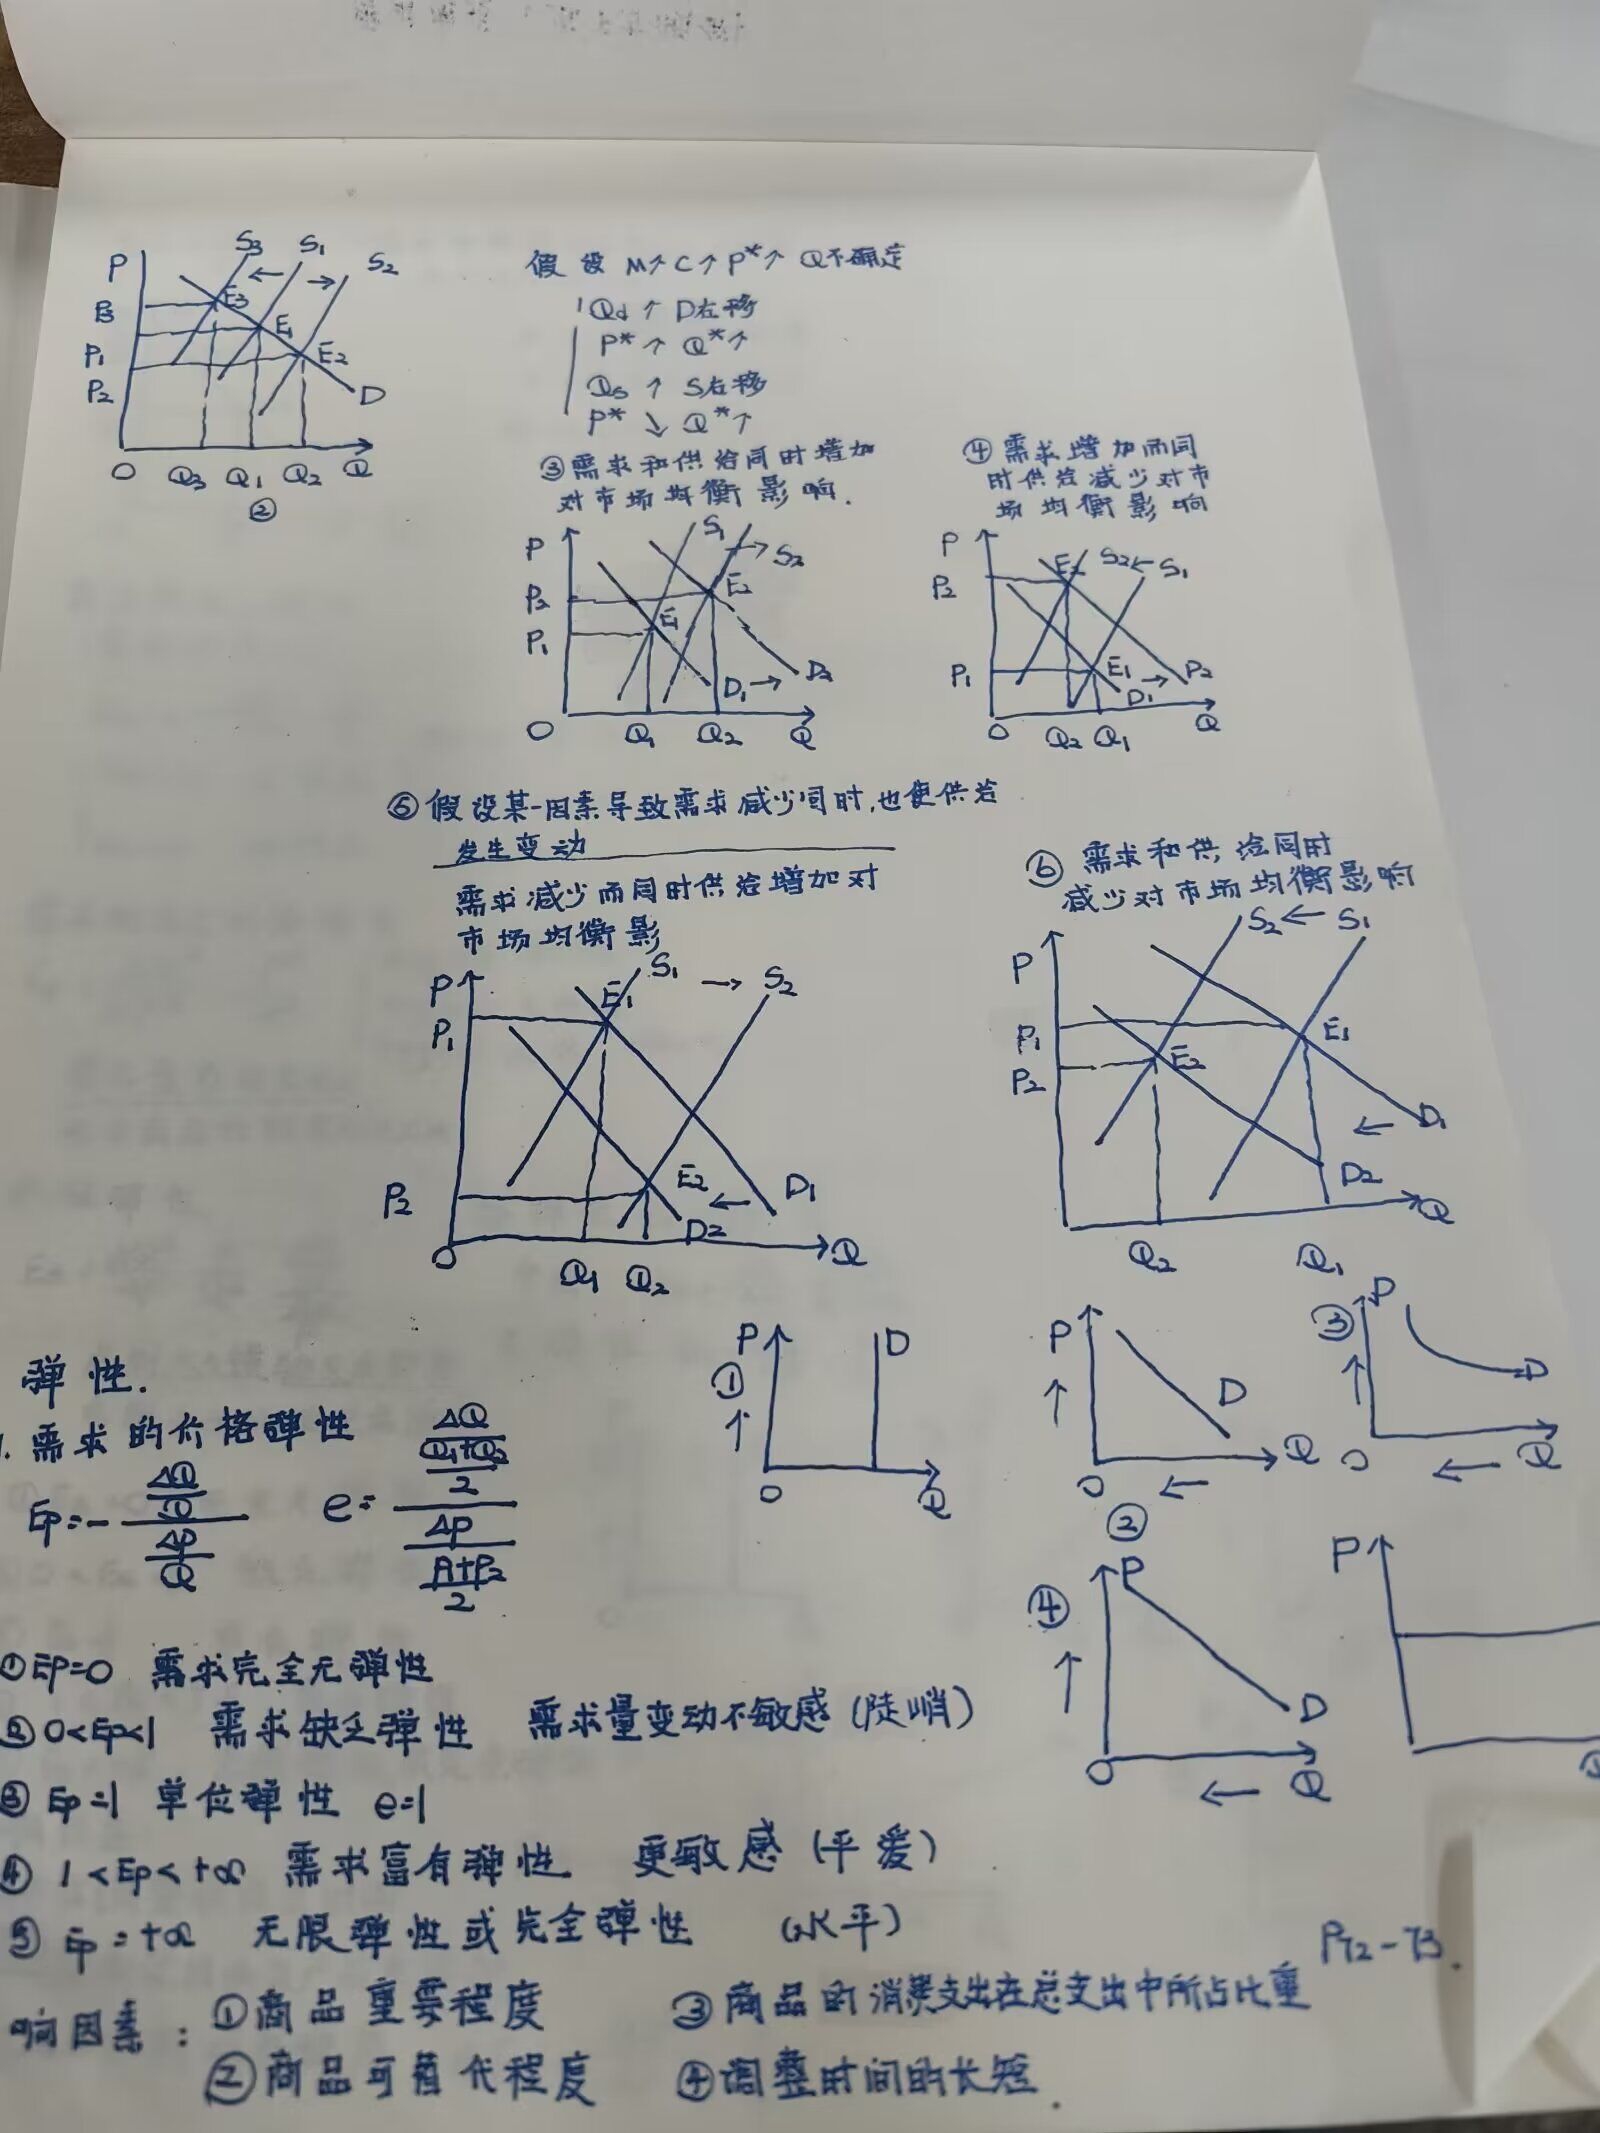 P S3 S1 S2
P3 E3
P1 E1
P2 E2
D
O Q3 Q1 Q2 Q
②
假设 M↑ C↑ P*↑ Q不确定
Qd ↑ D右移
P* ↑ Q*↑
Qs ↑ S右移
P* ↘ Q*↑
③需求和供给同时增加
对市场均衡影响.
P S1 → S2
P2 E2
P1 E1
D1 → D2
O Q1 Q2 Q
④需求增加而同
时供给减少对市
场均衡影响
P E2 S2 ← S1
P2
P1 E1
D1 → P2
O Q2 Q1 Q
⑤假设某一因素导致需求减少同时,也使供给
发生变动
需求减少而同时供给增加对
市场均衡影
P E1 S1 → S2
P1
P2 E2 ← D1
D2
O Q1 Q2 Q
⑥ 需求和供给同时
减少对市场均衡影响
P S2 ← S1
P1 E1
P2 E2
← D1
D2
Q
Q2 Q1
弹性.
1. 需求的价格弹性
Ep=-
ΔQ
Q
ΔP
Q
e=
ΔQ
Q1+Q2
2
ΔP
P1+P2
2
P D
①
↑
O Q
P
↑ D
O ← Q
②
③ P
↑ D
O ← Q
④ P
↑ D
O ← Q
P
①Ep=0 需求完全无弹性
②0<Ep<1 需求缺乏弹性 需求量变动不敏感(陡峭)
③ Ep=1 单位弹性 e=1
④ 1<Ep<+∞ 需求富有弹性 更敏感(平爰)
⑤ Ep=+∞ 无限弹性或完全弹性 (水平)
P72-73.
响因素: ①商品重要程度 ③商品的消费支出在总支出中所占比重
②商品可替代程度 ④调整时间的长短.